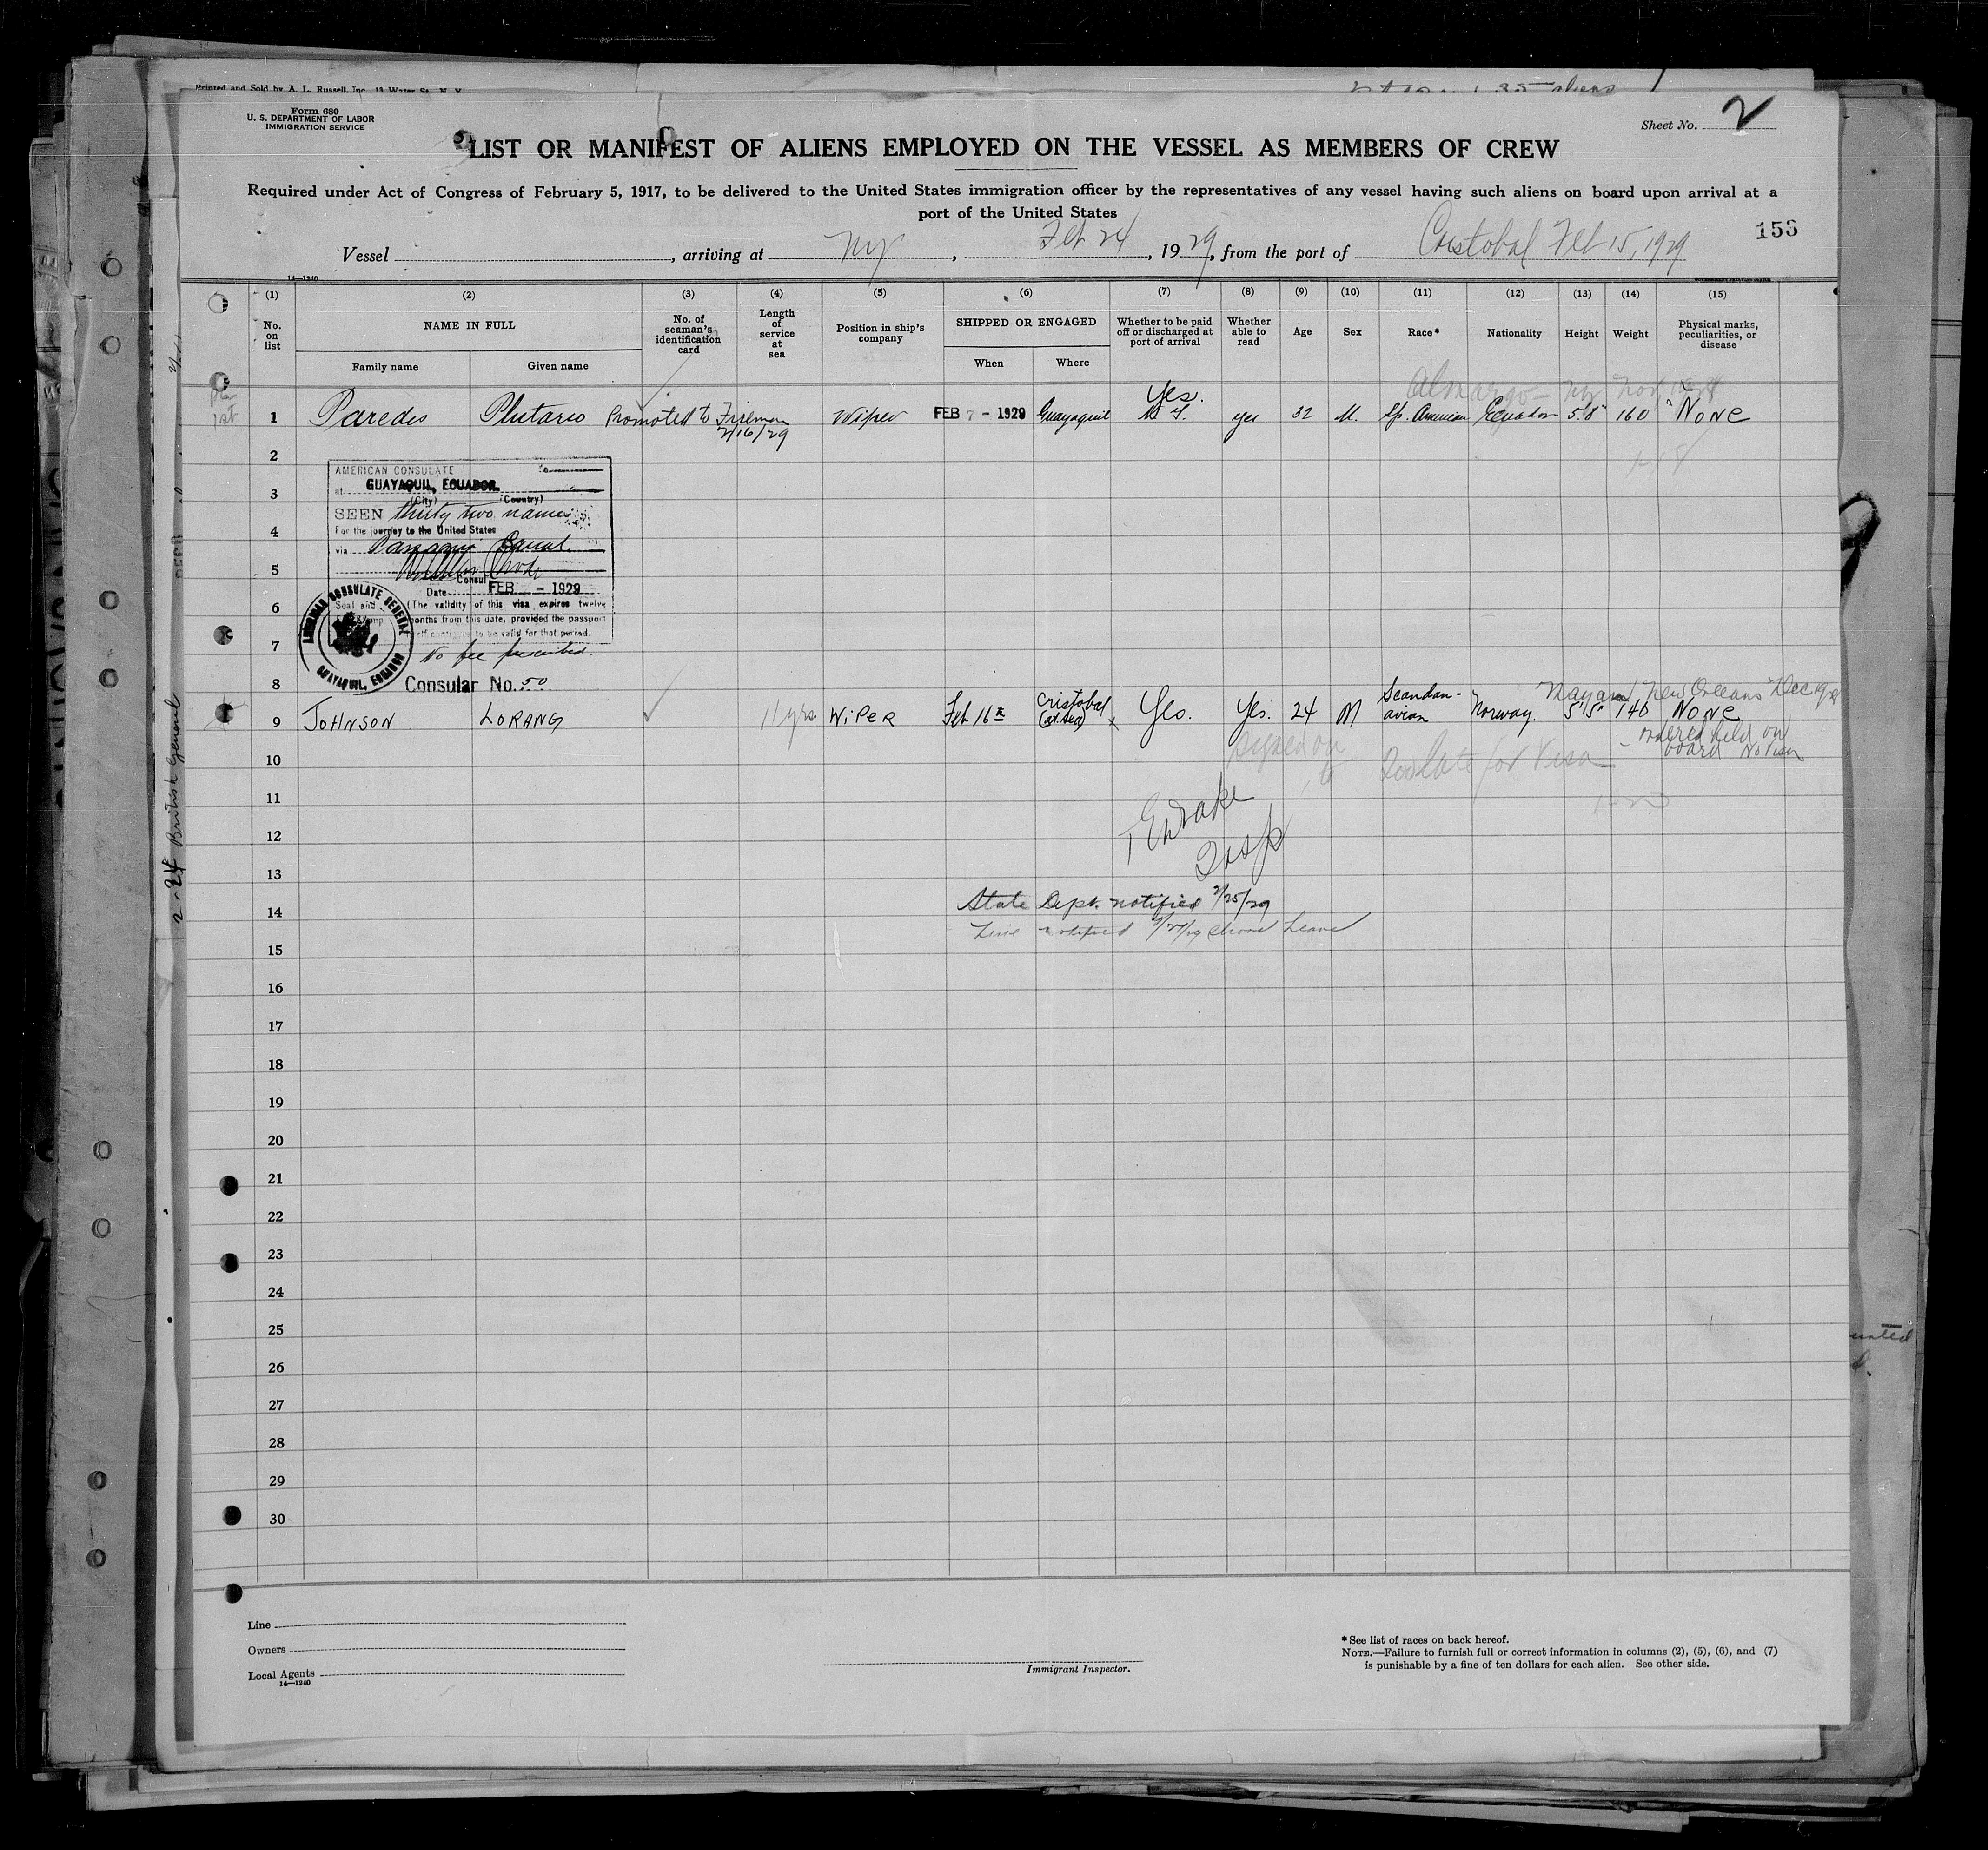 Printed and Sold by A. L. Russell, Inc., 13 Water St., N. Y.
35 aliens
Form 680
U. S. DEPARTMENT OF LABOR
IMMIGRATION SERVICE
Sheet No. 2
LIST OR MANIFEST OF ALIENS EMPLOYED ON THE VESSEL AS MEMBERS OF CREW
Required under Act of Congress of February 5, 1917, to be delivered to the United States immigration officer by the representatives of any vessel having such aliens on board upon arrival at a
port of the United States
156
Vessel , arriving at NY , Feb 24 , 1929, from the port of Cristobal Feb 15, 1929
14—1240
(1) (2) (3) (4) (5) (6) (7) (8) (9) (10) (11) (12) (13) (14) (15)
No. on list
NAME IN FULL
Family name Given name
No. of seaman's identification card
Length of service at sea
Position in ship's company
SHIPPED OR ENGAGED
When Where
Whether to be paid off or discharged at port of arrival
Whether able to read
Age
Sex
Race*
Nationality
Height
Weight
Physical marks, peculiarities, or disease
Almargo - NY Nov
Yes.
1st 1 Paredes Plutarco Promoted to Fireman 2/16/29 Wiper FEB 7 - 1929 Guayaquil N. Y. yes 32 M. Sp. American Ecuador 5.8" 160 None
1-18
2
3
4
5
6
7
8
AMERICAN CONSULATE
at GUAYAQUIL, ECUADOR.
(City) (Country)
SEEN thirty two names
For the journey to the United States
via Panama Canal.
Consul
Date FEB - 1929
(The validity of this visa expires twelve
months from this date, provided the passport
itself continues to be valid for that period.
Seal and
AMERICAN CONSULATE GENERAL
GUAYAQUIL, ECUADOR
No fee prescribed.
Consular No. 50
New Orleans Dec
9 JOHNSON LORANG 11 yrs WIPER Feb 16th Cristobal (at sea) x Yes. Yes. 24 M Scandanavian Norway. 5'5" 140 None
Ordered held on
board No Visa
Signed on
to late for Visa
10
11
12
13
14
15
T E Drake
Insp
State Dept. notified 2/25/29
Line notified 2/27/29 Shore Leave
16
17
18
19
20
21
22
23
24
25
26
27
28
29
30
2-24 British General
Line
Owners
Local Agents
14—1240
Immigrant Inspector.
*See list of races on back hereof.
NOTE.—Failure to furnish full or correct information in columns (2), (5), (6), and (7)
is punishable by a fine of ten dollars for each alien. See other side.